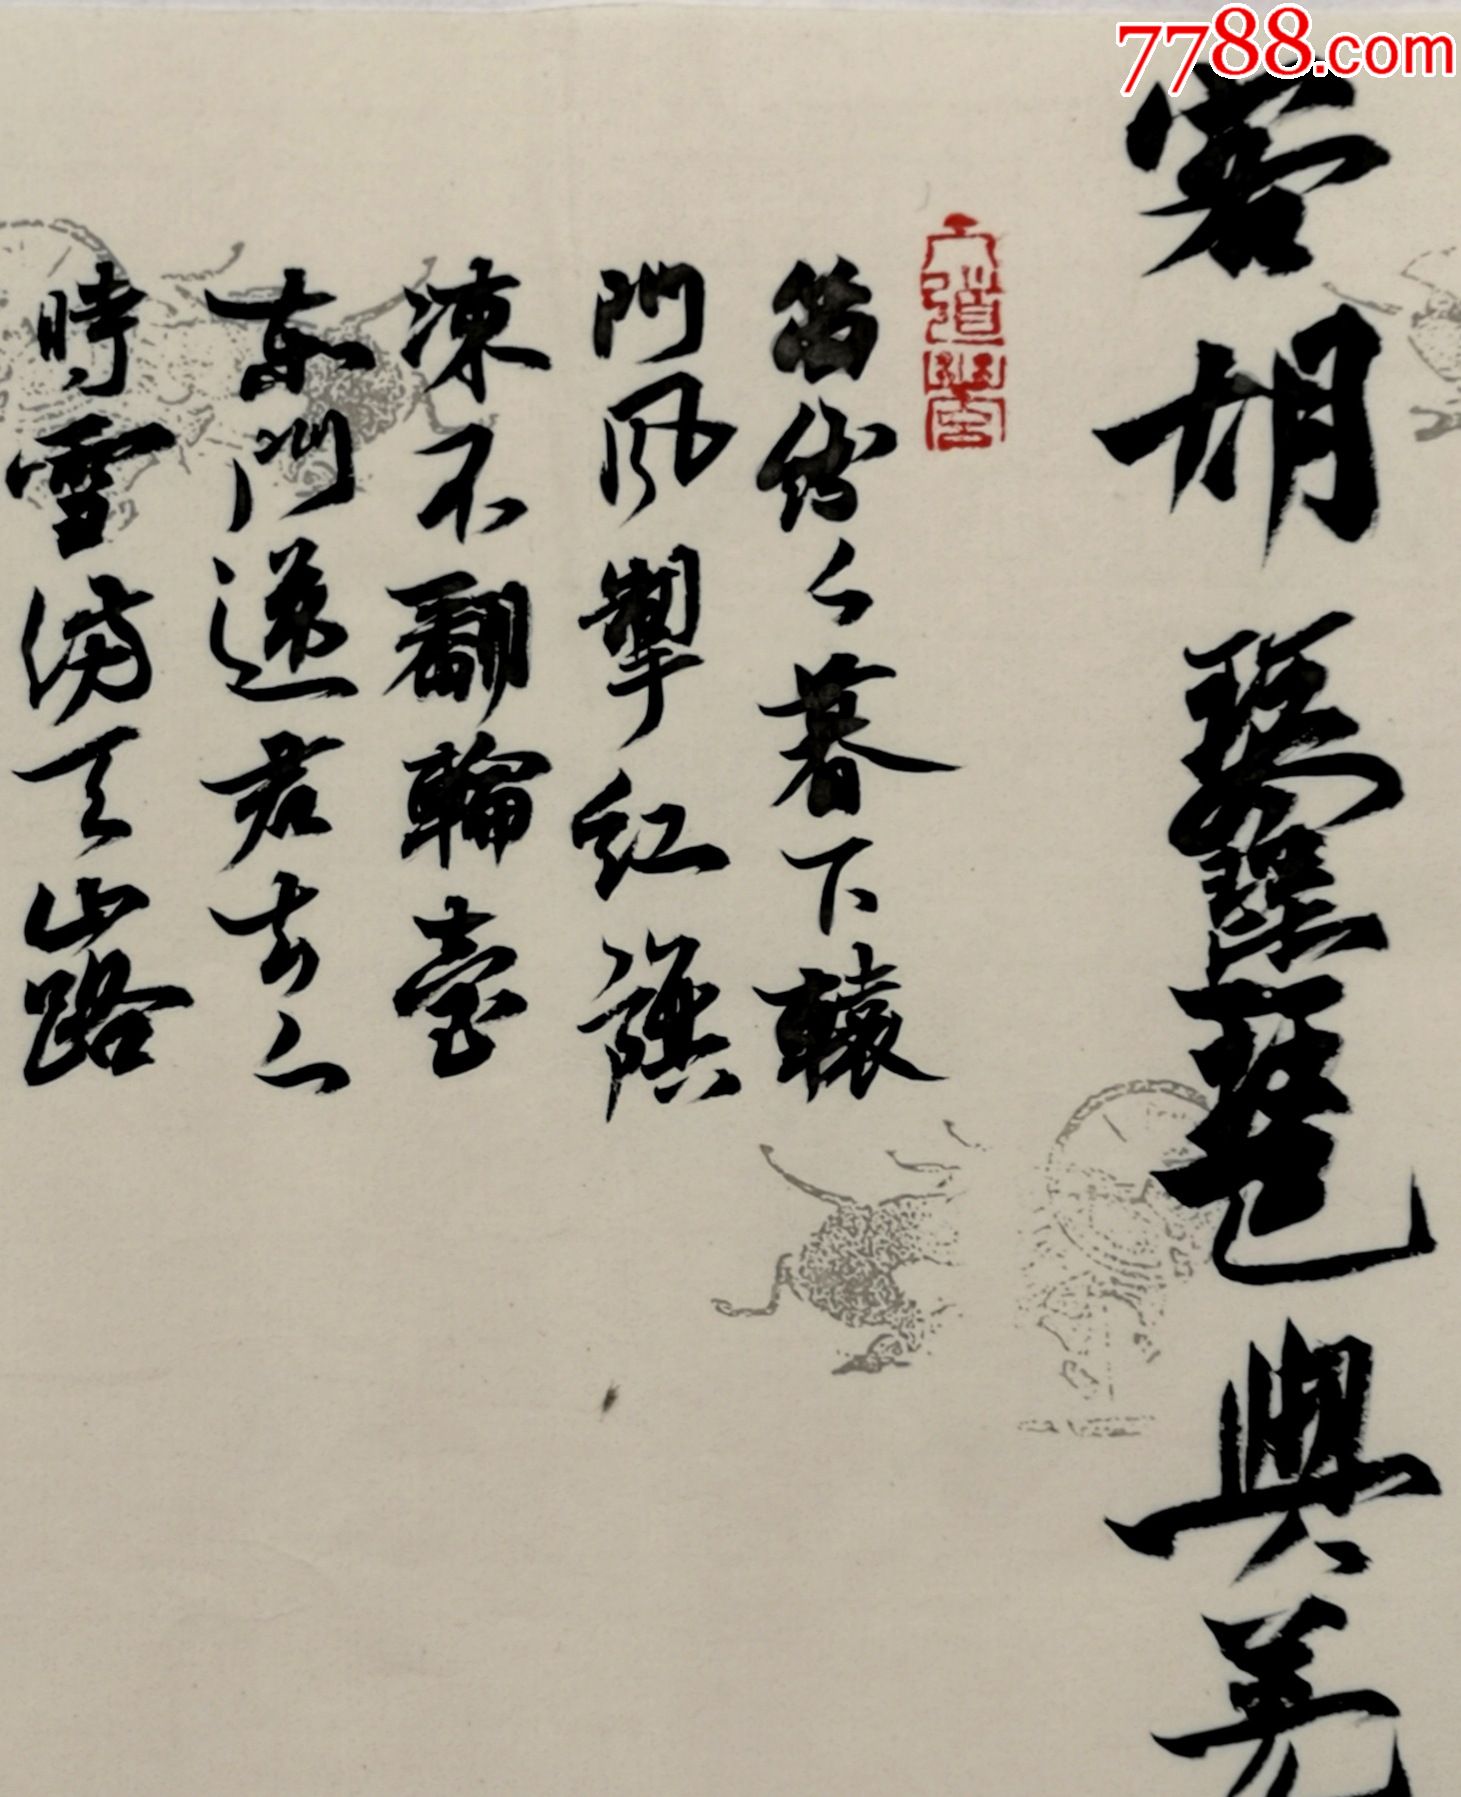 7788.com
客胡琴琵琶與羌
笛紛々暮下轅
門风掣紅旗
凍不翻輪臺
東門送君去々
時雪滿天山路